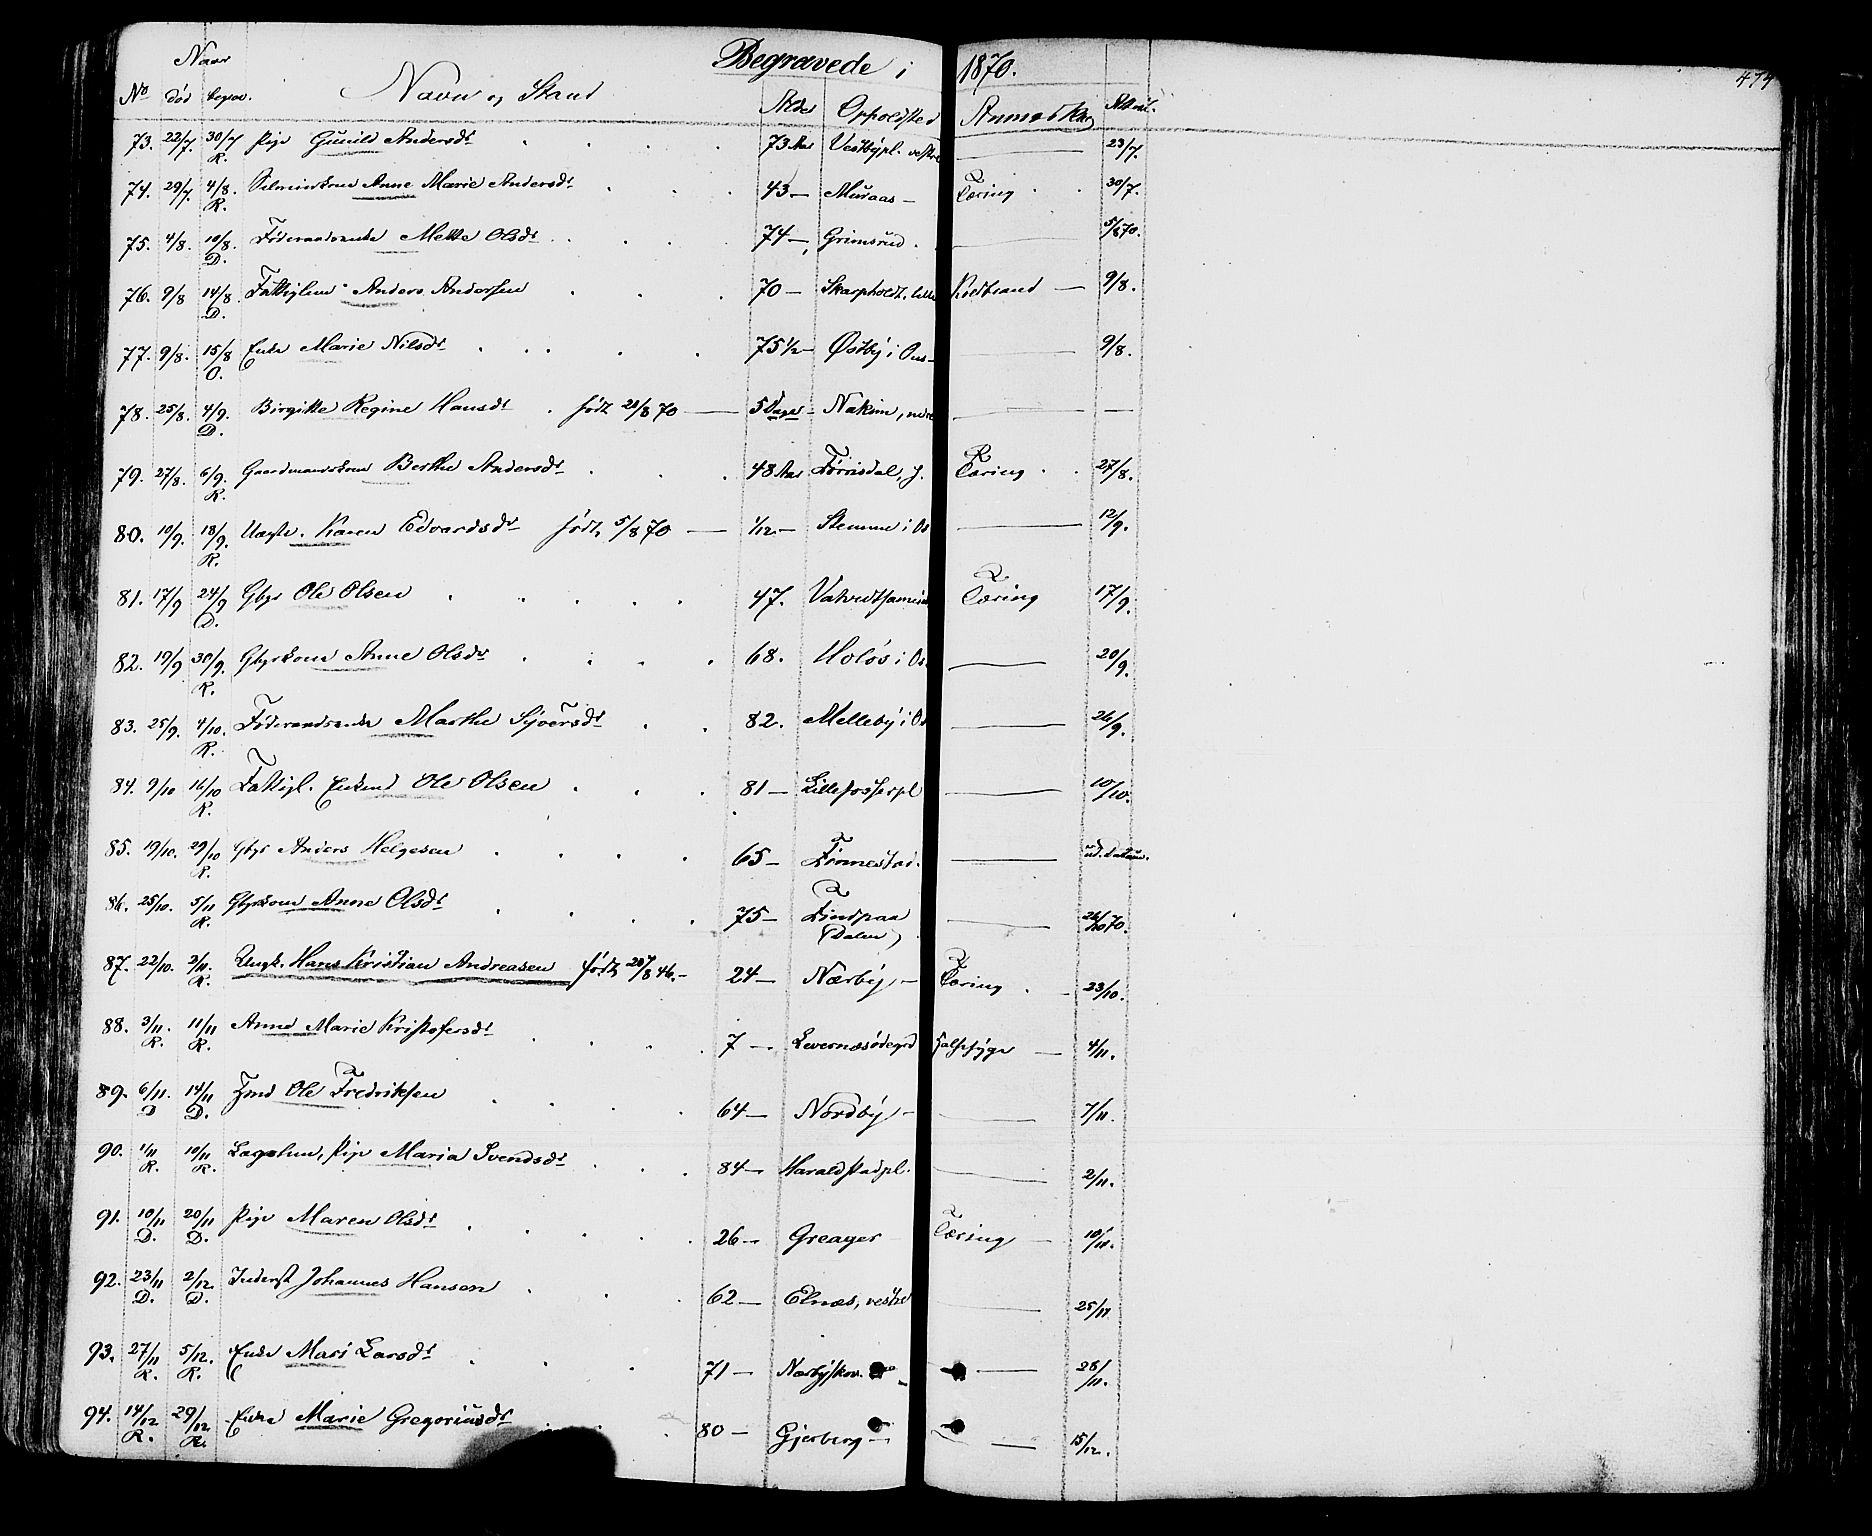 Begravede i 1870. 474
Naar
No død begrav. Navn og Stand Alder Opholdsted Anmærkn
73. 22/7. 30/7 R. Pige Gunild Andersdt 73 Aar Vestbypl. vestre — 23/7.
74. 29/7. 4/8. R. Anne Marie Andersdt 43 — Muraas — Tæring 30/7.
75. 4/8. 10/8. D. Føderaadsenke Mette Olsdt 74 — Grimsrud — 5/8 70.
76. 9/8 14/8. D. Fattiglem Anders Andersen 70 — Skarpholdt, lille Koldbrand — 9/8.
77. 9/8. 15/8 O. Enke Marie Nilsdt 75 1/2 — Østby i Aas — 9/8.
78. 25/8. 4/9. D. Birgitte Regine Hansdt født 20/8 70 — 5 Dage — Nakim, nedre — —
79. 27/8. 6/9. R. Gaardmandskone Berthe Andersdt 48 Aar Tørrisdal, Tæring 27/8.
80. 10/9. 18/9. R. Uægte. Karen Edvardsdt født 5/8 70 — 1/12 — Stemme i Os — 12/9.
81. 17/9 24/9 D. Gbgr Ole Olsen 47. Tæring 17/9.
82. 19/9 30/9. R. Gbgrkone Anne Olsdt 68. Holøs i Os — 20/9.
83. 25/9. 4/10. R. Føderaadsenke Marthe Syversdt 82. Melleby i Os — 26/9.
84. 9/10 16/10 R. Fattigl. Enkmd Ole Olsen 81 — Lillefosserpl — 10/10.
85. 19/10. 29/10 R. Gbgr Anders Helgesen 65 — Finnestad. — ud. Datum.
86. 25/10. 5/11 R. Gbgrkone Anne Olsdt 75 — Lindpaa (Dalen) — 26/10 70.
87. 22/10. 2/11. R. Ungk. Hans Kristian Andreasen født 20/8 46. — 24 — Nærby — Tæring — 23/10.
88. 3/11. R. 11/11 R. Anne Marie Kristofersdt 7 — Levernæsødegrd Halssyge — 4/11.
89. 6/11. D 14/11 D. Ole Fredriksen 64 — Nordby — — 7/11.
90. 1/11 R. 10/11 R. Lægslem, Pige Maria Svendsdt 84 — Haraldstadpl. — 2/11.
91. 10/11 D. 20/11 D. Pige Maren Olsdt 26 — Greager Tæring — 10/11.
92. 23/11 D. 2/12. D. Inderst Johannes Hansen 62 — Elnæs, vestre — 25/11
93. 27/11 R. 5/12. R. Enke Mari Larsdt 71 — Nærbyskov. — 28/11.
94. 14/12 R. 29/12. R. Enke Marie Gregoriusdt 80 — Gjerberg — — 15/12.